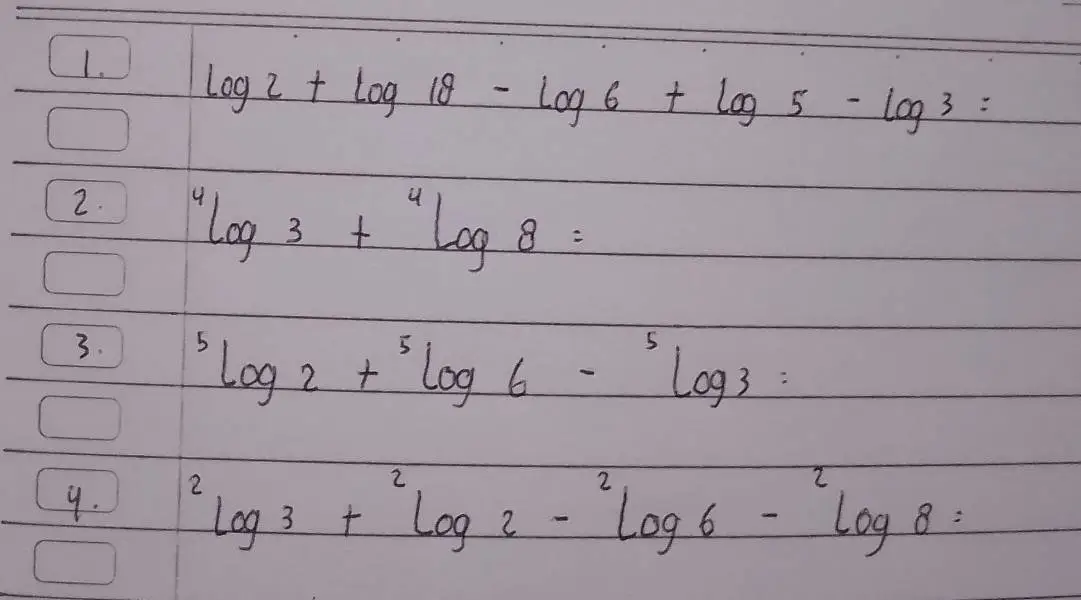 1. log 2 + log 18 - log 6 + log 5 - log 3 =
2. ⁴log 3 + ⁴log 8 =
3. ⁵log 2 + ⁵log 6 - ⁵log 3 =
4. ²log 3 + ²log 2 - ²log 6 - ²log 8 =